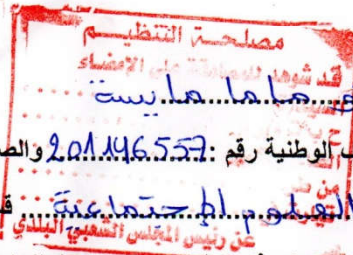 مصلحة التنظيم
قد شوهد للمصادقة على الإمضاء
ماما مايسة
الوطنية رقم :201146557 والص
العلوم الإجتماعية
عن رئيس المجلس الشعبي البلدي